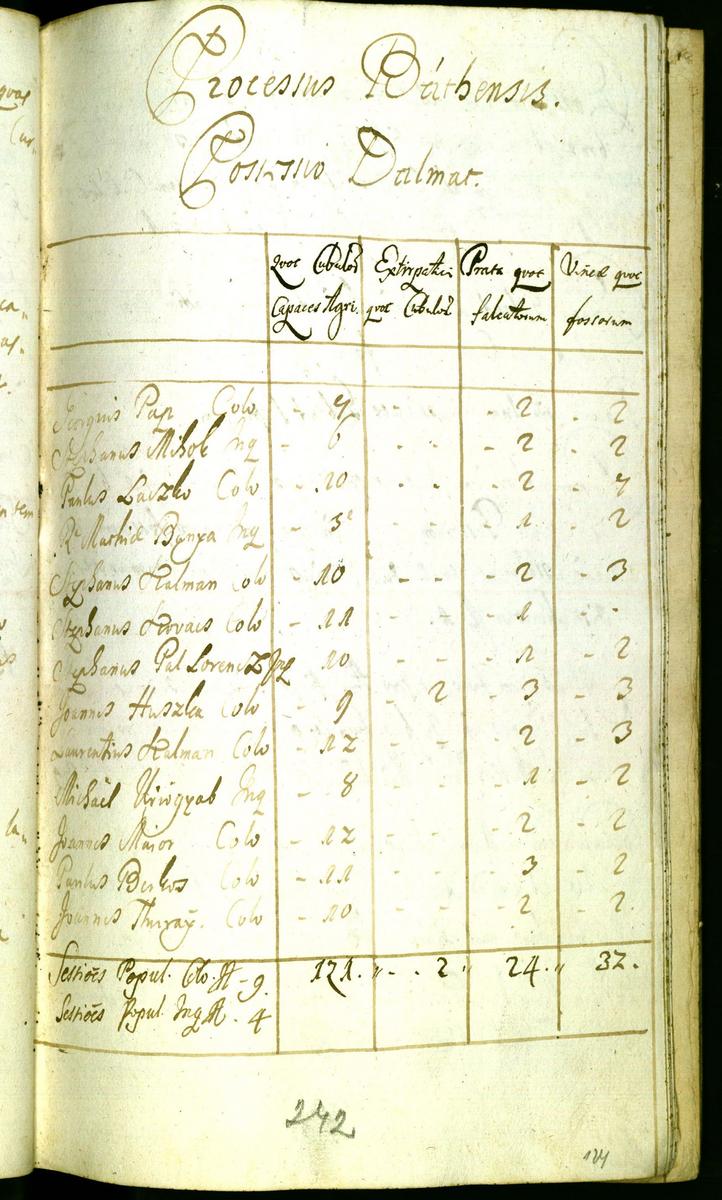 Processus Báthensis.
Possessio Dalmat.
quot Cubulor Extirpati Prata quot Vineæ quot
Capaces Agri. quot Cubulor falcatorum fossorum
Georgius Pap Colo - 7 - - - 2 - 2
Stephanus Mihok Inq - 6 - - - 2 - 2
Paulus Laczko Colo - 10 - - - 2 - 7
Rta Mathiæ Bunya Inq - 5 - - - 1 - 2
Stephanus Kalman Colo - 10 - - - 2 - 3
Stephanus Kovacs Colo - 11 - - - 1 - -
Stephanus Pal Lorencz Inq 10 - - - 1 - 2
Joannes Huszka Colo - 9 - 2 - 3 - 3
Laurentius Kalman Colo - 12 - - - 2 - 3
Michaël Inq - 8 - - - 1 - 2
Joannes Maior Colo - 12 - - - 2 - 2
Paulus Berkes Colo - 11 - - - 3 - 2
Joannes Thuray. Colo - 10 - - - 2 - 2
Sessiões Popul. Colo. - 9. 121. " - - 2 " 24. " 32.
Sessiões Popul. Inq - 4
242
124